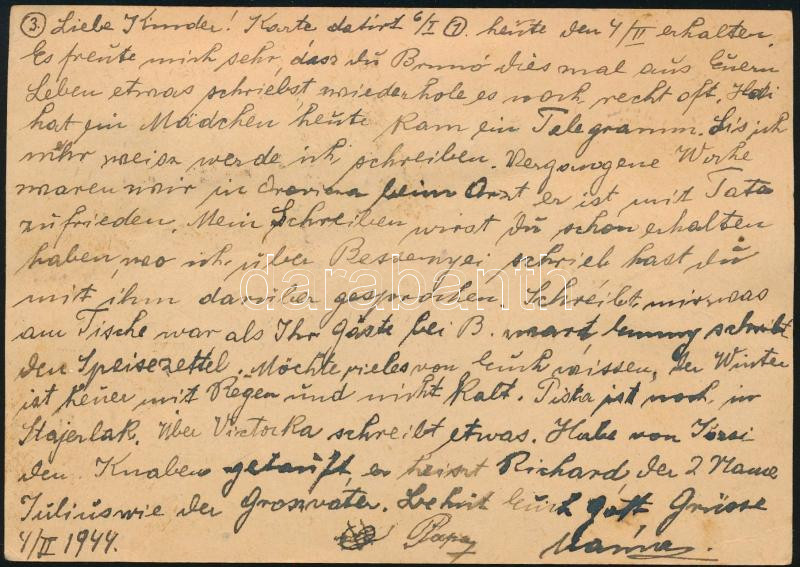 ③ Liebe Kinder! Karte datirt 6/I ⑦. heute den 4/II erhalten.
Es freute mich sehr, dasz du Brunó dies mal aus Euern
Leben etwas schriebst, wiederhole es noch recht oft. Hedi
hat ein Mädchen heute kam ein Telegramm. bis ich
mehr weisz werde ich schreiben. Vergangene Woche
waren wir in Oravica beim Arzt er ist mit Tata
zufrieden. Mein Schreiben wirst du schon erhalten
haben, wo ich über Bessenyei schrieb hast du
mit ihm darüber gesprochen. Schreibt mir was
am Tische war als Ihr Gäste bei B. wart schreibt
den Speisezettel. Möchte vieles von Euch wissen, der Winter
ist heuer mit Regen und nicht kalt. Pista ist noch in
Stajerlak. Über Victorka schreibt etwas. Habe von
den Knaben getauft, er heiszt Richard der 2 Name
Julius wie der Groszvater. Behüt Euch Gott, Grüsse
4/II 1944. Papa Mama.
darabanth